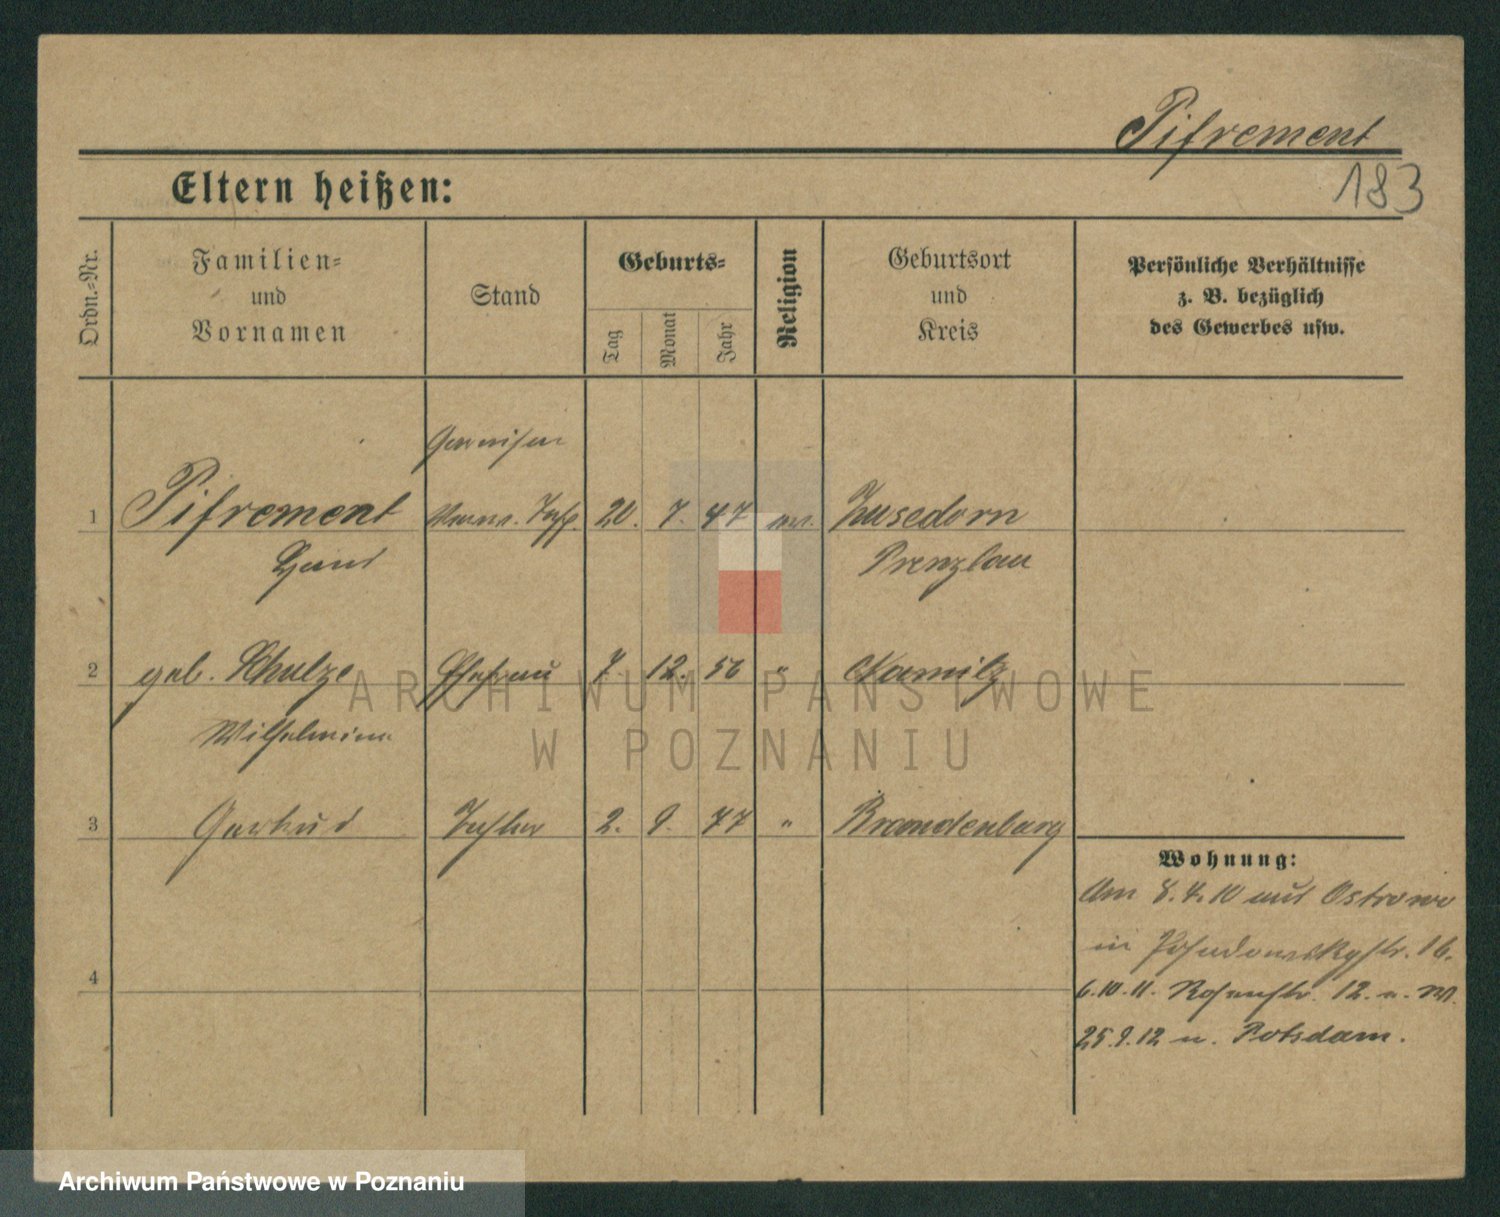 Pifrement
183
Eltern heißen:
Ordn.-Nr.
Familien-
und
Vornamen
Stand
Geburts-
Tag
Monat
Jahr
Religion
Geburtsort
und
Kreis
Persönliche Verhältnisse
z. B. bezüglich
des Gewerbes usw.
Garnison
1 Pifrement Verw. Insp. 20. 7. 47 ev.
Prenzlau
2 geb. Schulze Ehefrau 7. 12. 56 "
Wilhelmine
3 Gertrud Tochter 2. 9. 77 " Brandenburg
4
Wohnung:
Am 8.4.10 aus Ostrowo
in Posadowskystr. 16.
6.10.11. Rosenstr. 12. n. W.
25.9.12 n. Potsdam.
ARCHIWUM PAŃSTWOWE
W POZNANIU
Archiwum Państwowe w Poznaniu